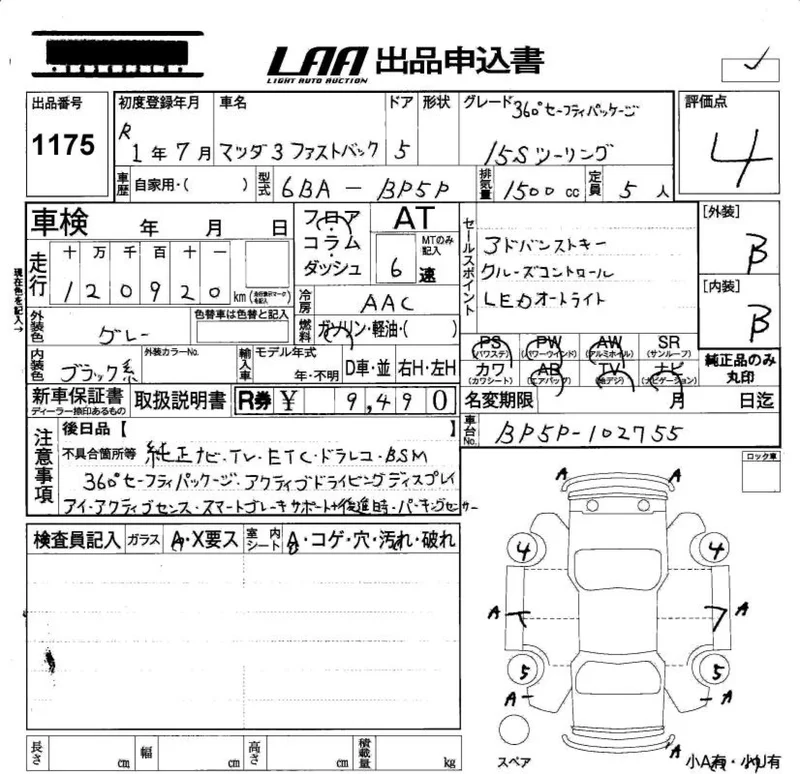 LAA 出品申込書
LIGHT AUTO AUCTION
出品番号 初度登録年月 車名 ドア 形状 グレード 360°セーフティパッケージ 評価点
1175 R 1年7月 マツダ3 ファストバック 5 15Sツーリング 4
車歴 自家用・( ) 型式 6BA-BP5P 排気量 1500cc 定員 5人
車検 年 月 日 フロア・コラム・ダッシュ AT セールスポイント [外装]
MTのみ記入 6速 B
現在色を記入→
走行 十 万 千 百 十 一 アドバンストキー
120920 km (走行メーターマークを記入) クルーズコントロール [内装]
冷房 AAC LEDオートライト B
外装色 グレー 色替車は色替と記入 燃料 ガソリン・軽油・( )
PS (パワステ) PW (パワーウインド) AW (アルミホイル) SR (サンルーフ) 純正品のみ丸印
内装色 ブラック系 外装カラーNo. 輸入車 モデル年式 年・不明 D車・並 右H・左H
カワ (カワシート) AB (エアバッグ) TV (地デジ) ナビ (ナビゲーション)
新車保証書 ディーラー捺印あるもの 取扱説明書 R券 ¥ 9,490 名変期限 月 日迄
注意事項 後日品【 車台No. BP5P-102755
不具合箇所等 純正ナビ・TV・ETC・ドラレコ・BSM ロック車
360°セーフティパッケージ・アクティブドライビングディスプレイ
アイ・アクティブセンス・スマートブレーキサポート+後進時・パーキングセンサー
検査員記入 ガラス A・X要ス 室内シート A・コゲ・穴・汚れ・破れ
A
4 4
A A
5 5
A A
A
スペア 小A有・小U有
長さ cm 幅 cm 高さ cm 積載量 kg